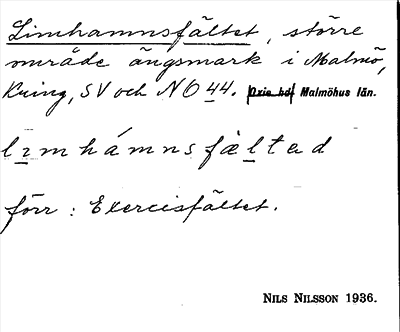 Limhamnsfältet, större
område ängsmark i Malmö,
kring, SV och NO 44. Oxie hd. Malmöhus län.
limhámnsfàltəd
förr: Exercisfältet.
NILS NILSSON 1936.